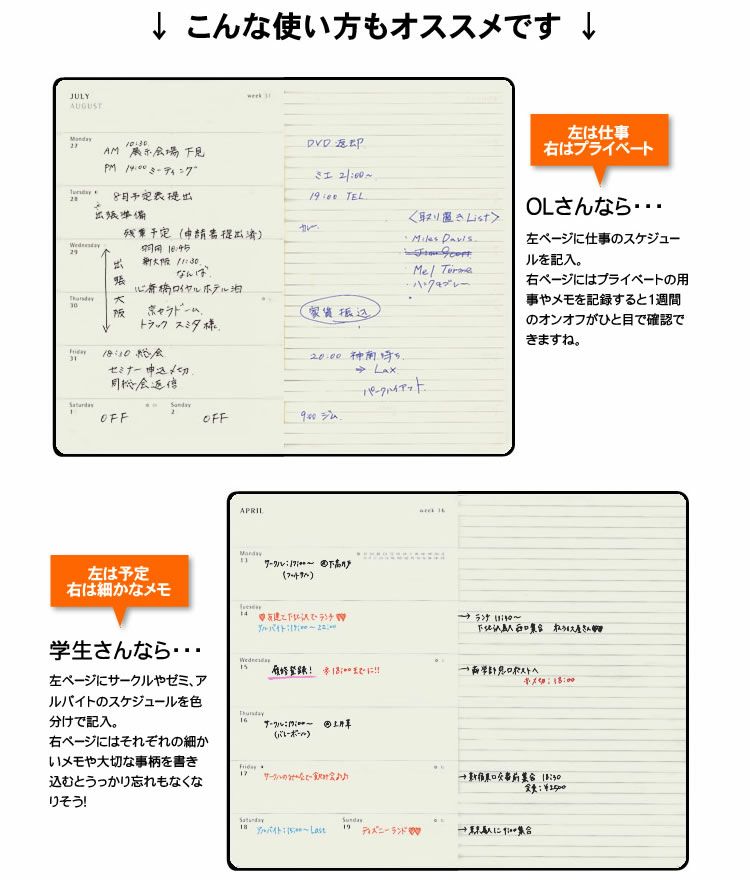 ↓ こんな使い方もオススメです ↓
JULY
AUGUST
week 31
Monday
27
AM 10:30 展示会場下見
PM 14:00 ミーティング
Tuesday
28
8月予定表提出
出張準備
残業予定(申請書提出済)
Wednesday
29
羽田 10:45
新大阪 11:30
なんば
心斎橋ロイヤルホテル泊
出張大阪
Thursday
30
京セラドーム
トラック スミタ様
Friday
31
18:30 総会
セミナー申込〆切
Saturday
1
OFF
Sunday
2
OFF
DVD 返却
ミエ 21:00~
19:00 TEL
<取り置きList>
・Miles Davis
Mel Torme
家賃振込
20:00
⇒ Lax
パークハイアット
9:00 ジム
左は仕事
右はプライベート
OLさんなら・・・
左ページに仕事のスケジュー
ルを記入。
右ページにはプライベートの用
事やメモを記録すると1週間
のオンオフがひと目で確認で
きますね。
左は予定
右は細かなメモ
学生さんなら・・・
左ページにサークルやゼミ、ア
ルバイトのスケジュールを色
分けで記入。
右ページにはそれぞれの細か
いメモや大切な事柄を書き
込むとうっかり忘れもなくな
りそう!
APRIL
week 16
Monday
13
サークル:17:00~ @下高井戸
(フットサル)
Tuesday
14
♡友達と下北沢でランチ♡♡
アルバイト:17:00~22:00
→ ランチ 11:30~
下北沢駅西口集合
Wednesday
15
履修登録! ※18:00までに!!
※〆切:18:00
Thursday
16
サークル:17:00~
(バレーボール)
Friday
17
→ 新宿東口交番前集合 18:30
会費:¥2500
Saturday
18
アルバイト:15:00~Last
Sunday
19
ディズニーランド♡♡
→ 東京駅に9:00集合